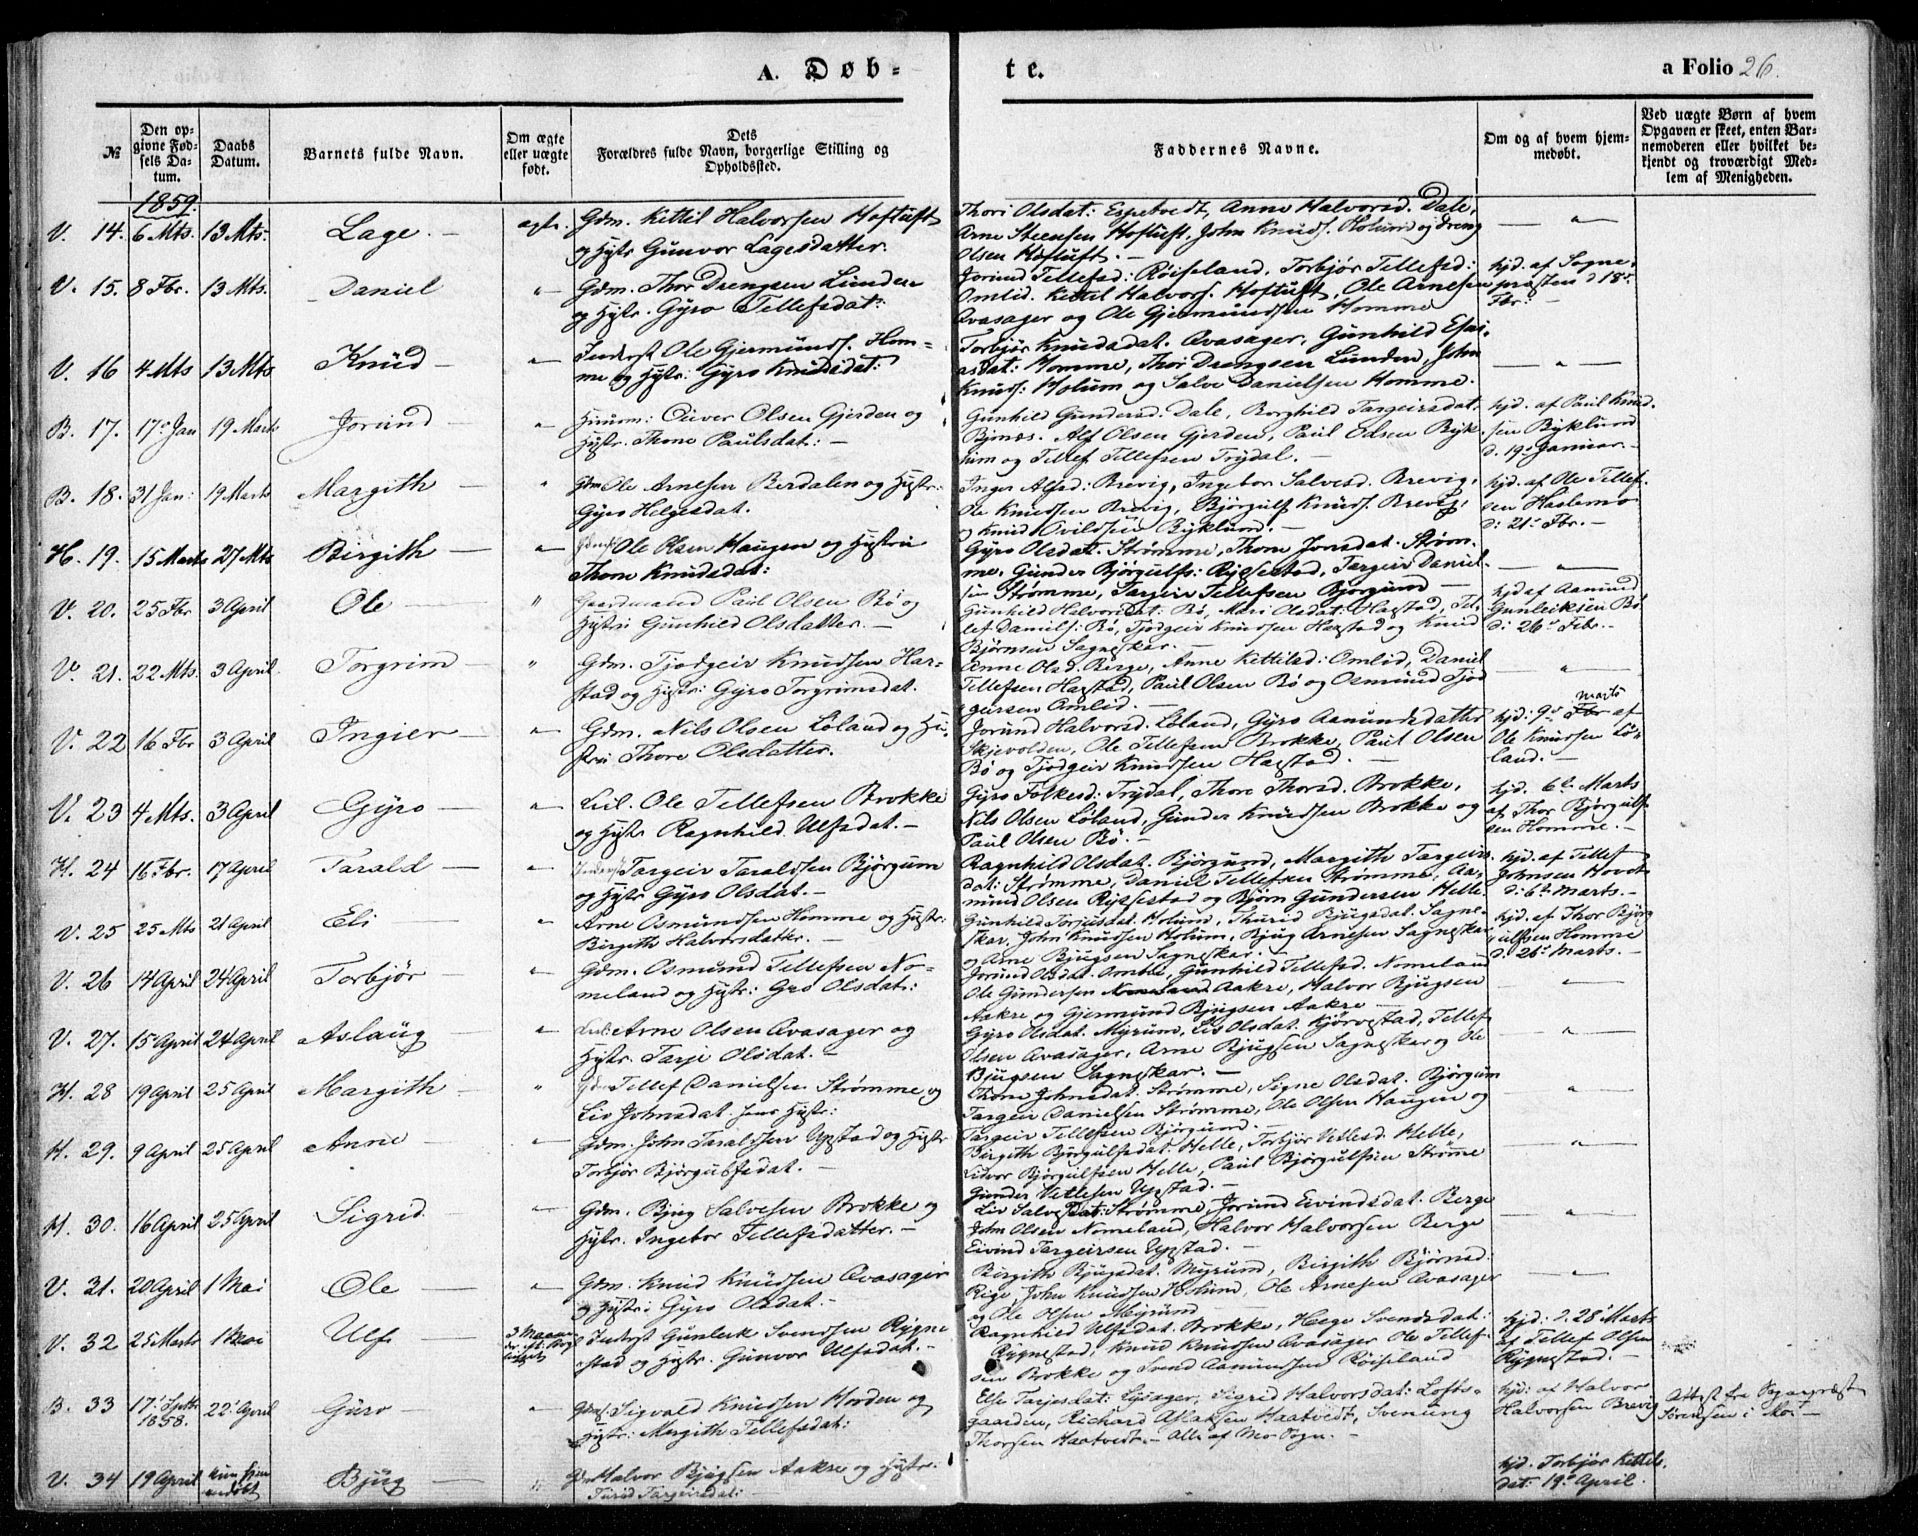 A. Døb-
te.
a Folio 26.
№
Den op-
givne Fød-
sels Da-
tum.
Daabs
Datum.
Barnets fulde Navn.
Om ægte
eller uægte
født.
Dets
Forældres fulde Navn, borgerlige Stilling og
Opholdssted.
Faddernes Navne.
Om og af hvem hjem-
medøbt.
Ved uægte Børn af hvem
Opgaven er skeet, enten Bar-
nemoderen eller hvilket be-
kjendt og troværdigt Med-
lem af Menigheden.
1859.
V. 14. 6 Mts. 13 Mts. Lage.
Gdm. Kittil Halvorsen Hoftuft
og Hstr Gunvor Lagesdatter.
Thori Olsdat: Espetvedt, Anne Halvorsd. Dale,
Arne Steensen Hoftuft, John Knuds. Holum og Dreng
Olsen Hoftuft.
V. 15. 8 Fbr. 13 Mts. Daniel
Gdm. Thor Drengsen Lunden
og Hstr. Gyro Tellefsdat:
Jorund Tellefsd: Røiseland, Torbjør Tellefsd:
Omlid. Kittil Halvors. Hoftuft, Ole Arnesen
Avasager og Ole Gjermundsen Homme
hjd. af Sogne-
præsten d 18de
Fbr:
V. 16 4 Mts 13 Mts Knud
Inderst Ole Gjermunds. Hom-
me og Hstr: Gyro Knudsdat:
Torbjør Knudsdat. Avasager, Gunhild Esai-
asdat: Homme, Thor Drengsen Lunden, John
Knuds: Holum og Salve Danielsen Homme.
B. 17. 17 Jan 19 Marts Jorund
Huusm: Eiver Olsen Gjerden og
Hstr. Thone Paulsdat:
Gunhild Gundersd: Dale, Borghild Targeirsdat,
Bjrnæs. Alf Olsen Gjerden, Paul Edsen Byk-
lum og Tellef Tellefsen Trydal.
hjd. af Paul Knud-
sen Byklund
d. 19. Januar.
B. 18. 31 Jan: 19 Marts Margith
Gdm Ole Arnesen Berdalen og Hstr:
Gyro Helgesdat.
Inger Alfsd: Brevig, Ingebor Salvesd. Brevig,
Ole Knudsen Brevig, Bjørgulf Knuds. Brevig,
og Knud Ovildsen Byklum.
hjd. af Ole Tellef-
sen Haslemo
d: 21. Fbr.
H. 19. 15 Marts 27 Mts Birgith
Ole Olsen Haugen og Hustru
Thone Knudsdat:
Gyro Olsdat. Strømme, Thone Jonsdat. Strøm-
me, Gunder Bjørgulfs: Rysestad, Targeir Daniel-
sen Strømme, Targeir Tellefsen Bjorgum
V. 20. 25 Fbr 3 April Ole
Gaardmand Paul Olsen Bø og
Hstr: Gunhild Olsdatter.
Gunhild Halvorsdat: Bø, Mari Olsdat: Harstad, Tel-
lef Daniels: Bø, Tjodgeir Knudsen Harstad og Knud
Bjørnsen Sagneskar.
hjd af Aamund
Gunleiksen Bø
d: 26. Febr.
V. 21. 22 Mts. 3 April. Torgrim
Gdm. Tjodgeir Knudsen Har-
stad og Hstr: Gyro Torgrimsdat.
Anne Olsd. Berge, Anne Kittilsd: Omlid, Daniel
Tellefsen Harstad, Paul Olsen Bø og Osmund Tjod
geirsen Omlid.
V. 22 16 Fbr 3 April Ingier
Gdm. Nils Olsen Løland og Hu-
stru Thore Olsdatter.
Jorund Halvorsd. Løland, Gyro Aamundsdatter
Skjevolden, Ole Tellefsen Brokke, Paul Olsen
Bø og Tjodgeir Knudsen Harstad.
Marts
hjd: 9. Fbr af
Ole Knudsen Lø-
land.
V. 23 4 Mts. 3 April Gyro
Ole Tellefsen Brokke
og Hstr Ragnhild Ulfsdat.
Gyro Folkesd: Trydal, Thore Thorsd. Brokke,
Nils Olsen Løland, Gunder Knudsen Brokke og
Paul Olsen Bø.
hjd. 6te Marts
af Thor Bjørgulf-
sen Homme.
H. 24 16 Fbr. 17 April Tarald
Targeir Taraldsen Bjørgum
og Hstr Gyro Olsdat.
Ragnhild Olsdat. Bjørgund, Margith Targeirs-
dat: Strømme, Daniel Tellefsen Strømme, Aa-
mund Olsen Rysestad og Bjørn Gundersen Helle
hjd. af Tellef
Johnsen Hovet
d: 6te Marts.
V. 25 25 Mts 21 April Eli
Arne Osmundsen Homme og Hstr.
Birgith Halvorsdatter.
Gunhild Torjusdat. Holum, Thurid Bjugsdat. Sagne-
skar, John Knudsen Holum, Bjug Arnesen Sagneskar
og Arne Bjugsen Sagneskar.
hjd. af Thor Bjørg
ulfsen Homme
d: 26. Marts.
V. 26 14 April 24 April Torbjør
Gdm. Osmund Tellefsen No-
meland og Hstr: Gro Olsdat:
Jorund Olsdat. Omble, Gunhild Tellefsd. Nomeland
Ole Gundersen Nomeland Aakre, Halvor Bjugsen
Aakre og Gjermund Bjugsen Aakre
V. 27. 15 April 24 April Aslaug
Arne Olsen Avasager og
Hstr. Tarje Olsdat.
Gyro Olsdat. Myrum, Liv Olsdat. Kjørvestad, Tellef
Olsen Avasager, Arne Bjugsen Sagneskar og Ole
Bjugsen Sagneskar.
H. 28 19 April 25 April Margith
Tellef Danielsen Strømme og
Liv Johnsdat. hans Hstr:
Thone Johnsdat. Strømme, Signe Olsdat. Bjørgum
Targeir Danielsen Strømme, Ole Olsen Haugen og
Targeir Tellefsen Bjørgum.
H. 29. 9 April 25 April Anne
Gdm. John Taraldsen Upstad og Hstr
Torbjør Bjørgulfsdat.
Birgith Bjorgulfsdat. Helle, Torbjør Vetlesd. Helle,
Lidvor Bjørgulfsen Helle, Paul Bjørgulfsen Strøme
Gunder Vetlesen Upstad.
H. 30. 16 April 25 April Sigrid.
Gdm. Bjug Salvesen Brokke og
Hstr. Ingebor Tellefsdatter.
Liv Salvesdat: Strømme, Jorund Eivindsdat. Berge
John Olsen Nomeland, Halvor Halvorsen Berge
Eivind Targeirsen Upstad.
V. 31. 20 April 1 Mai Ole
Gdm. Knud Knudsen Avasager
og Hstr: Gyro Olsdat.
Birgith Bjugsdat. Myrum, Birgith Bjørnsd:
Rige, John Knudsen Holum, Ole Arnesen Avasager
og Ole Olsen Myrum
V. 32 25 Marts 1 Mai Ulf
Inderst Gunlek Svendsen Rygne
stad og Hstr. Gunvor Ulfsdat.
Ragnhild Ulfsdat. Brokke, Hæge Svendsdat:
Rygnestad, Knud Knudsen Avasager Ole Tellef-
sen Brokke og Svend Aamundsen Røiseland
hjd: d. 28 Marts
af Tellef Olsen
Rygnestad.
B. 33 17. Sptbr 1858. 22 April Guro
Sigvald Knudsen Horden og
Hstr: Margith Tellefsdat:
Else Tarjesdat: Lysager, Sigrid Halvorsdat: Lofts-
gaarden, Richard Aslaksen Haatvedt, Svenung
Thorsen Haatvedt. Alle af Mo Sogn.
hjd: af Halvor
Halvorsen Brevig
Attest fra Sogneprest
Sørensen i Mo:
V. 34 19 April Bjug
Halvor Bjugsen Aakre og Hstr.
Turid Targeirsdat:
hjd. Torbjør Kittils-
dat: 19. April.